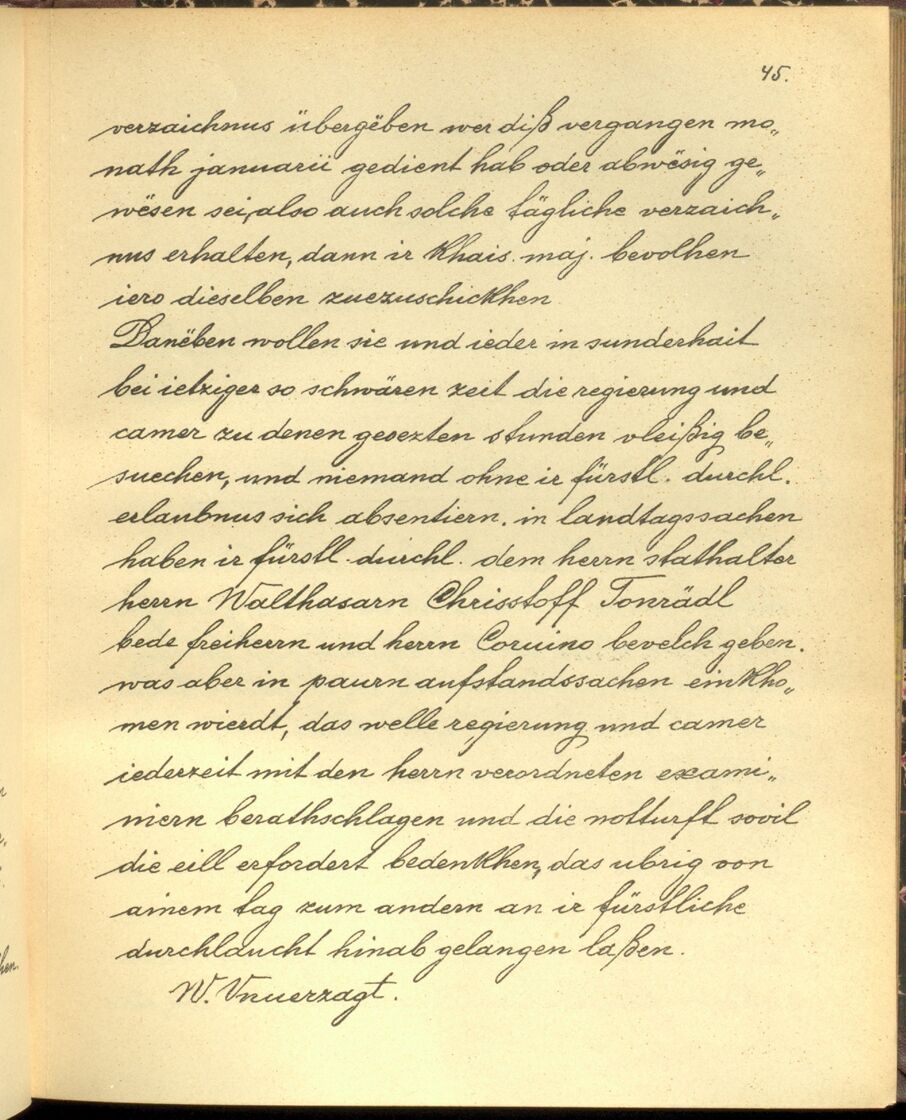 45.
verzaichnus übergëben wer diß vergangen mo„
nath januarii gedient hab oder abwësig ge„
wësen sei, also auch solche tägliche verzaich„
nus erhalten, dann ir khais. maj. bevolhen
iero dieselben zuezuschickhen
Danëben wollen sie und ieder in sunderhait
bei ietziger so schwären zeit die regierung und
camer zu denen gesezten stunden vleißig be„
suechen, und niemand ohne ir fürstl. durchl.
erlaubnus sich absentiern. in landtagssachen
haben ir fürstl. durchl. dem herrn stathalter
herrn Walthasarn Chrisstoff Tonrädl
bede freiherrn und herrn Coruino bevelch geben.
was aber in paurn aufstandssachen einkho„
men wierdt, das welle regierung und camer
iederzeit mit den herrn verordneten exami„
niern berathschlagen und die notturft sovil
die eill erfordert bedenkhen, das ubrig von
ainem tag zum andern an ir fürstliche
durchlaucht hinab gelangen laßen.
W. Vnuerzagt.